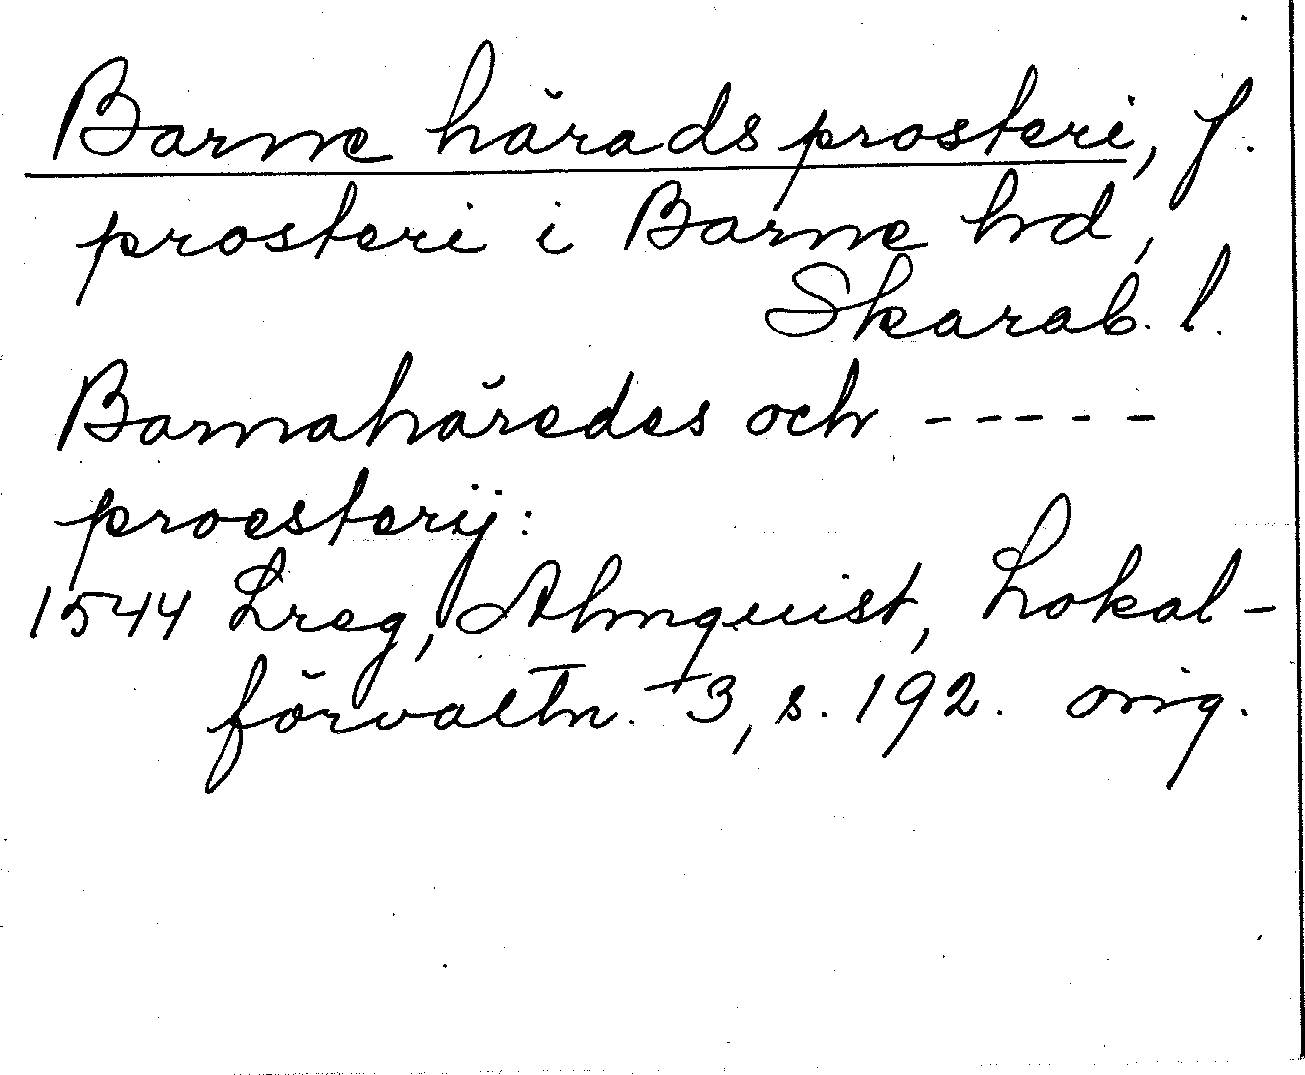 Barne härads prosteri, f.
prosteri i Barne hd,
Skarab. l.
Barnahäredes och - - - - -
proesterij:
1544 Lreg, Almquist, Lokal-
förvaltn. 3, s. 192. orig.